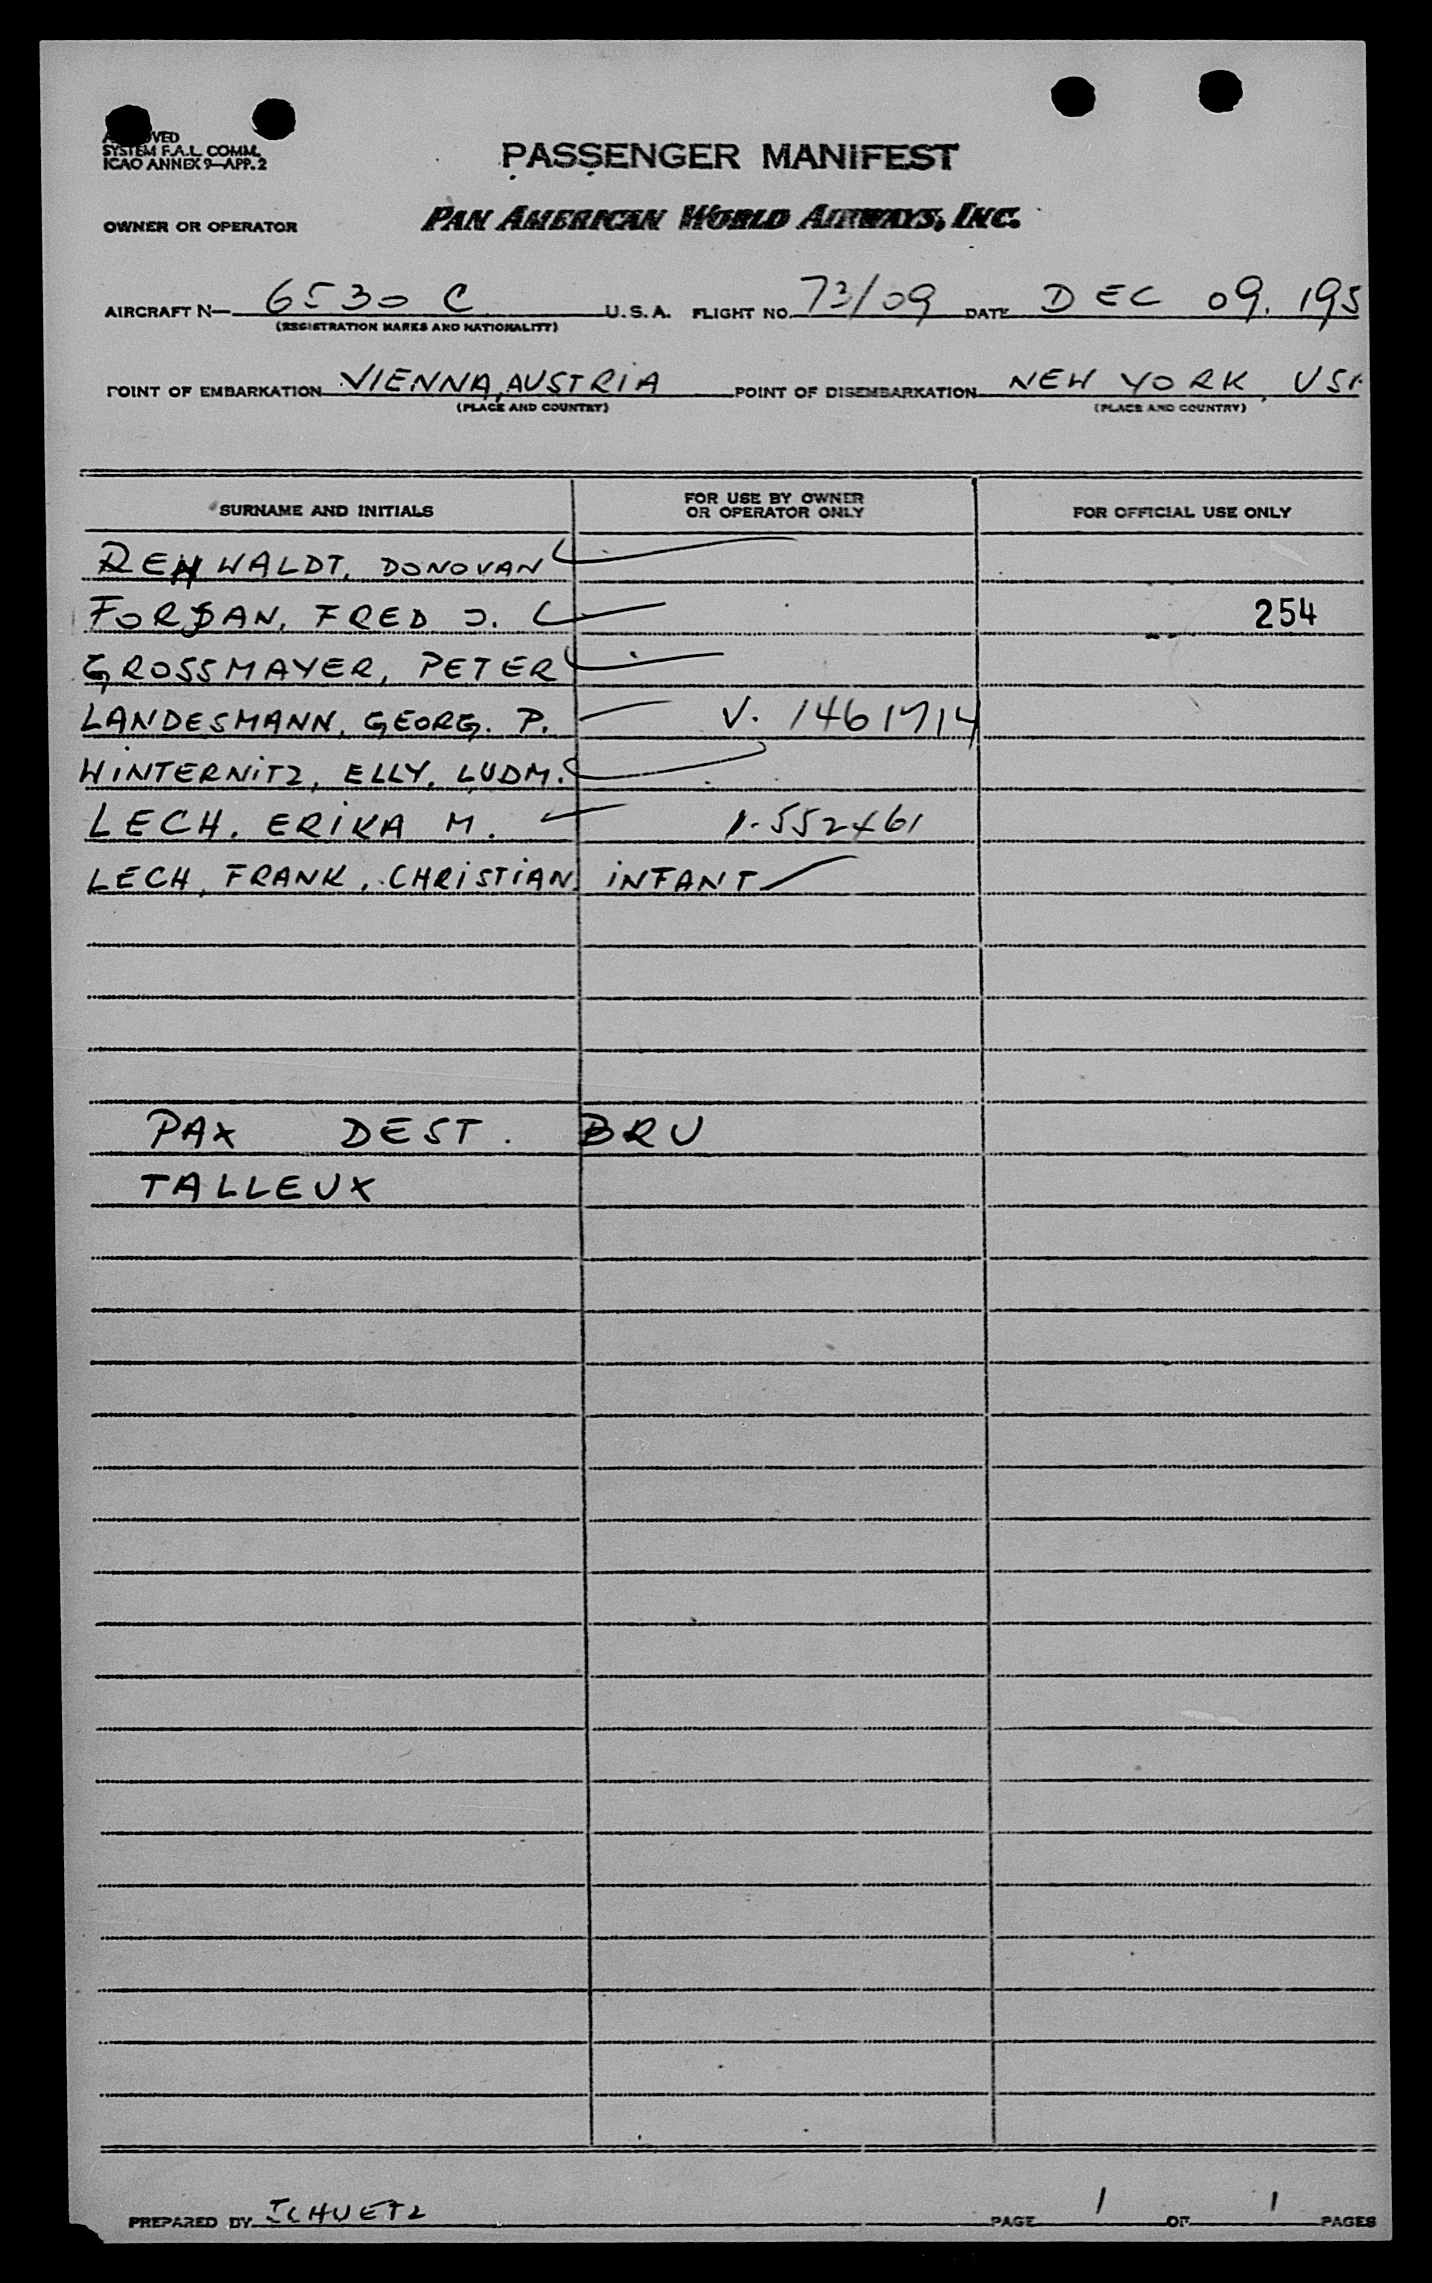 VED
SYSTEM F.A.L. COMM.
ICAO ANNEX 9—APP. 2
PASSENGER MANIFEST
OWNER OR OPERATOR PAN AMERICAN WORLD AIRWAYS, INC.
AIRCRAFT N— 6530 C U.S.A. FLIGHT NO. 73/09 DATE DEC 09, 195
(REGISTRATION MARKS AND NATIONALITY)
POINT OF EMBARKATION VIENNA, AUSTRIA POINT OF DISEMBARKATION NEW YORK, US
(PLACE AND COUNTRY) (PLACE AND COUNTRY)
SURNAME AND INITIALS FOR USE BY OWNER OR OPERATOR ONLY FOR OFFICIAL USE ONLY
REHWALDT, DONOVAN
FRED J. 254
GROSSMAYER, PETER
LANDESMANN, GEORG. P. V. 1461714
WINTERNITZ, ELLY, LUDM.
LECH, ERIKA M.
LECH, FRANK, CHRISTIAN INFANT
PAX DEST. BRU
TALLEUX
PREPARED BY SCHUETZ PAGE 1 OF 1 PAGES